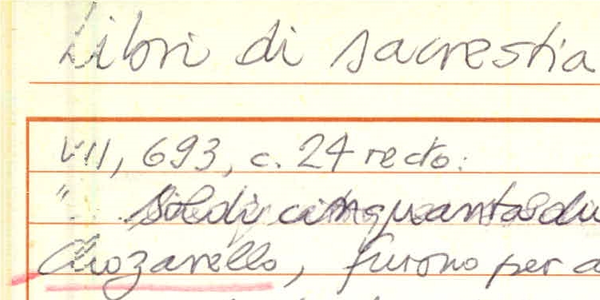 Libri di sacrestia
VII, 693, c. 24 recto:
" Soldi cinquantadu
furono per a